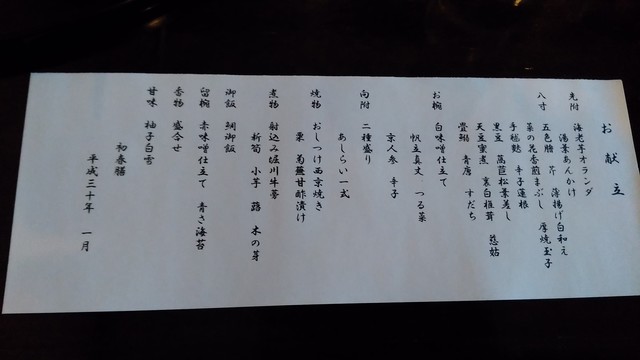 お献立
先附 海老芋オランダ
湯葉あんかけ
八寸 五色膾 芹 薄揚げ白和え
菜の花香煎まぶし 厚焼玉子
手毬麩 辛子蓮根
黒豆 萵苣松葉差し
天豆蜜煮 裏白椎茸 慈姑
畳鰯 青唐 すだち
お椀 白味噌仕立て
帆立真丈 つる菜
京人参 辛子
向附 二種盛り
あしらい一式
焼物 おしつけ西京焼き
栗 菊蕪甘酢漬け
煮物 射込み堀川牛蒡
新筍 小芋 蕗 木の芽
御飯 鯛御飯
留椀 赤味噌仕立て 青さ海苔
香物 盛合せ
甘味 柚子白雪
初春膳
平成三十年 一月